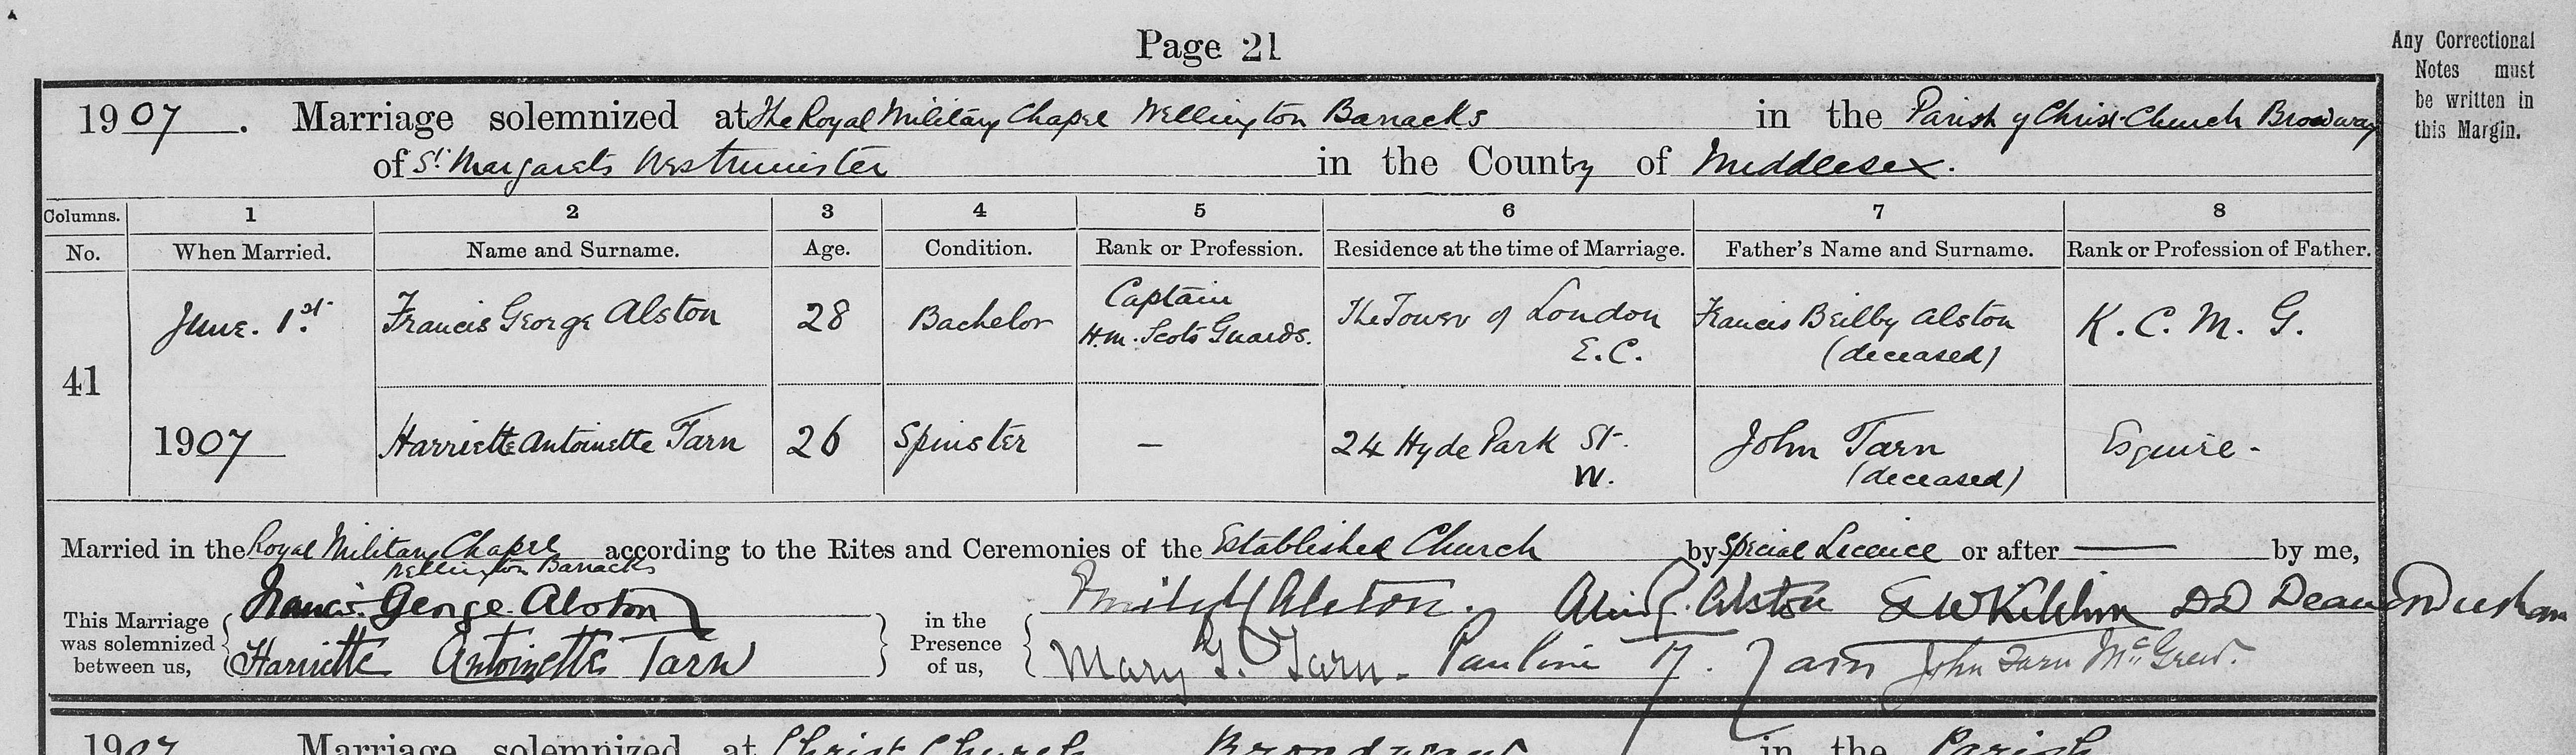 Page 21
Any Correctional
Notes must
be written in
this Margin.
1907. Marriage solemnized at The Royal Military Chapel Wellington Barracks in the Parish of Christ Church Broadway
of St. Margarets Westminster in the County of Middlesex.
Columns. 1 2 3 4 5 6 7 8
No. When Married. Name and Surname. Age. Condition. Rank or Profession. Residence at the time of Marriage. Father's Name and Surname. Rank or Profession of Father.
41
June. 1st. Francis George Alston 28 Bachelor Captain H.M. Scots Guards. The Tower of London E.C. Francis Beilby Alston (deceased) K.C.M.G.
1907 Harriette Antoinette Tarn 26 Spinster — 24 Hyde Park St. W. John Tarn (deceased) Esquire -
Married in the Royal Military Chapel according to the Rites and Ceremonies of the Established Church by Special Licence or after — by me,
Wellington Barracks
This Marriage
was solemnized
between us,
Francis George Alston
Harriette Antoinette Tarn
in the
Presence
of us,
Alston. Alston DD Dean of Durham
Mary G. Tarn. Pauline Tarn John Tarn McGrew.
1907 Marriage solemnized at Christ Church Broadway in the Parish